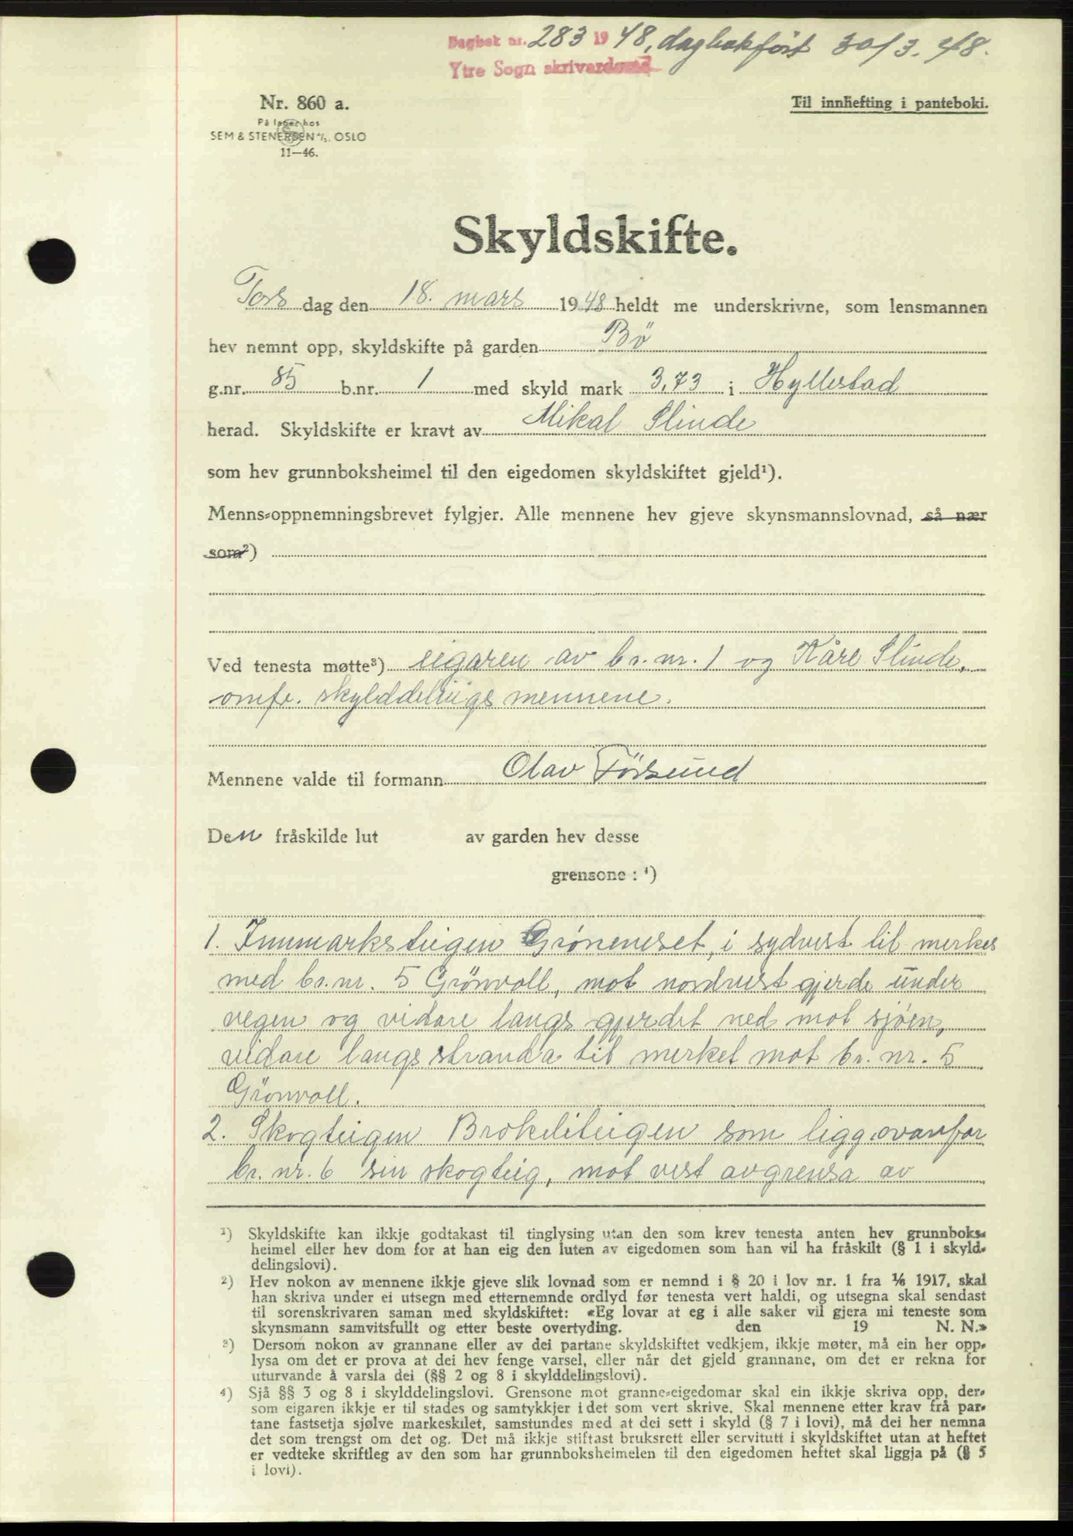 Dagbok nr. 283 1948, dagbokført 30/3.48.
Ytre Sogn skrivardøme
Nr. 860 a.
Til innhefting i panteboki.
På lager hos
SEM & STENERSEN A/S. OSLO
11—46.
Skyldskifte.
Tors dag den 18. mars 1948 heldt me underskrivne, som lensmannen
hev nemnt opp, skyldskifte på garden Bø
g.nr. 85 b.nr. 1 med skyld mark 3,73 i Hyllestad
herad. Skyldskifte er kravt av Mikal Slinde
som hev grunnboksheimel til den eigedomen skyldskiftet gjeld¹).
Menns-oppnemningsbrevet fylgjer. Alle mennene hev gjeve skynsmannslovnad, så nær
som²)
Ved tenesta møtte³) eigaren av br. nr. 1 og Kåre Slinde,
omfr. skylddelingsmennene.
Mennene valde til formann Olav Førsund
Den fråskilde lut av garden hev desse
grensone: ⁴)
1. Innmarksteigen Grøneneset, i sydvest til merkes
med br. nr. 5 Grönvoll, mot nordvest gjerde under
vegen og vidare langs gjerdet ned mot sjøen,
vidare langs stranda til merket mot br. nr. 5
Grönvoll.
2. Skogteigen Brokeliteigen som ligg ovanfor
br. nr. 6 sin skogteig, mot vest avgrensa av
¹) Skyldskifte kan ikkje godtakast til tinglysing utan den som krev tenesta anten hev grunnboks-
heimel eller hev dom for at han eig den luten av eigedomen som han vil ha fråskilt (§ 1 i skyld-
delingslovi).
²) Hev nokon av mennene ikkje gjeve slik lovnad som er nemnd i § 20 i lov nr. 1 fra 1/6 1917, skal
han skriva under ei utsegn med etternemnde ordlyd før tenesta vert haldi, og utsegna skal sendast
til sorenskrivaren saman med skyldskiftet: «Eg lovar at eg i alle saker vil gjera mi teneste som
skynsmann samvitsfullt og etter beste overtyding. den 19 N. N.»
³) Dersom nokon av grannane eller av dei partane skyldskiftet vedkjem, ikkje møter, må ein her opp-
lysa om det er prova at dei hev fenge varsel, eller når det gjeld grannane, om det er rekna for
uturvande å varsla dei (§§ 2 og 8 i skylddelingslovi).
⁴) Sjå §§ 3 og 8 i skylddelingslovi. Grensone mot granne-eigedomar skal ein ikkje skriva opp, der-
som eigaren ikkje er til stades og samtykkjer i det som vert skrive. Skal mennene etter krav frå par-
tane fastsetja sjølve markeskilet, samstundes med at dei sett i skyld (§ 7 i lovi), må dei her nemna
det som trengst om det og. Det må ikkje stiftast bruksrett eller servitutt i skyldskiftet utan at heftet
er vedteke skriftleg av den som har grunnboksheimelen til den eigedomen heftet skal liggja på (§ 5
i lovi).